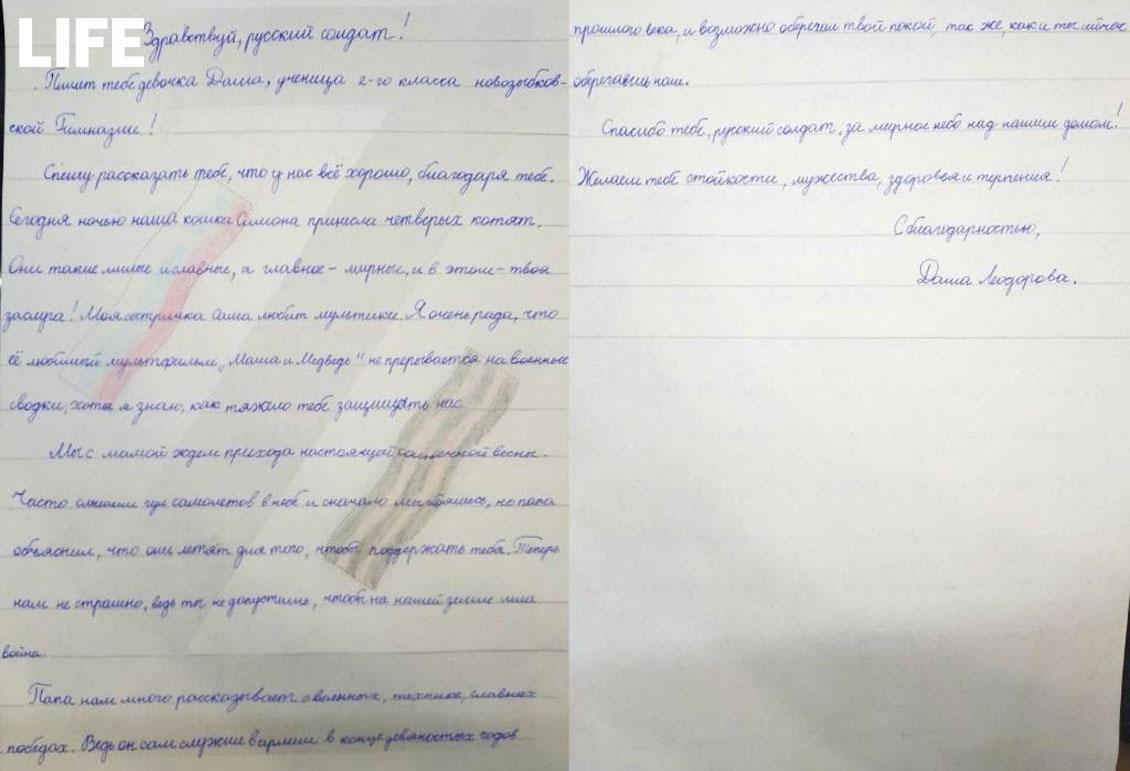 LIFE
Здравствуй, русский солдат!
Пишет тебе девочка Даша, ученица 2-го класса новозыбков-
ской Гимназии!
Спешу рассказать тебе, что у нас всё хорошо, благодаря тебе.
Сегодня ночью наша кошка Симона принесла четверых котят.
Они такие милые и славные, а главное - мирные, и в этом - твоя
заслуга! Моя сестричка Саша любит мультики. Я очень рада, что
её любимый мультфильм „Маша и Медведь" не прерывается на военные
сводки, хотя я знаю, как тяжело тебе защищать нас.
Мы с мамой ждем прихода настоящей солнечной весны.
Часто слышим гул самолетов в небе и сначала мы боялись, но папа
объяснил, что они летят для того, чтобы поддержать тебя. Теперь
нам не страшно, ведь ты не допустишь, чтобы на нашей земле шла
война.
Папа нам много рассказывает о военных, технике, славных
победах. Ведь он сам служил в армии в конце девяностых годов
прошлого века, и возможно оберегал твой покой, так же, как и ты сейчас
оберегаешь наш.
Спасибо тебе, русский солдат, за мирное небо над нашим домом!
Желаем тебе стойкости, мужества, здоровья и терпения!
С благодарностью,
Даша